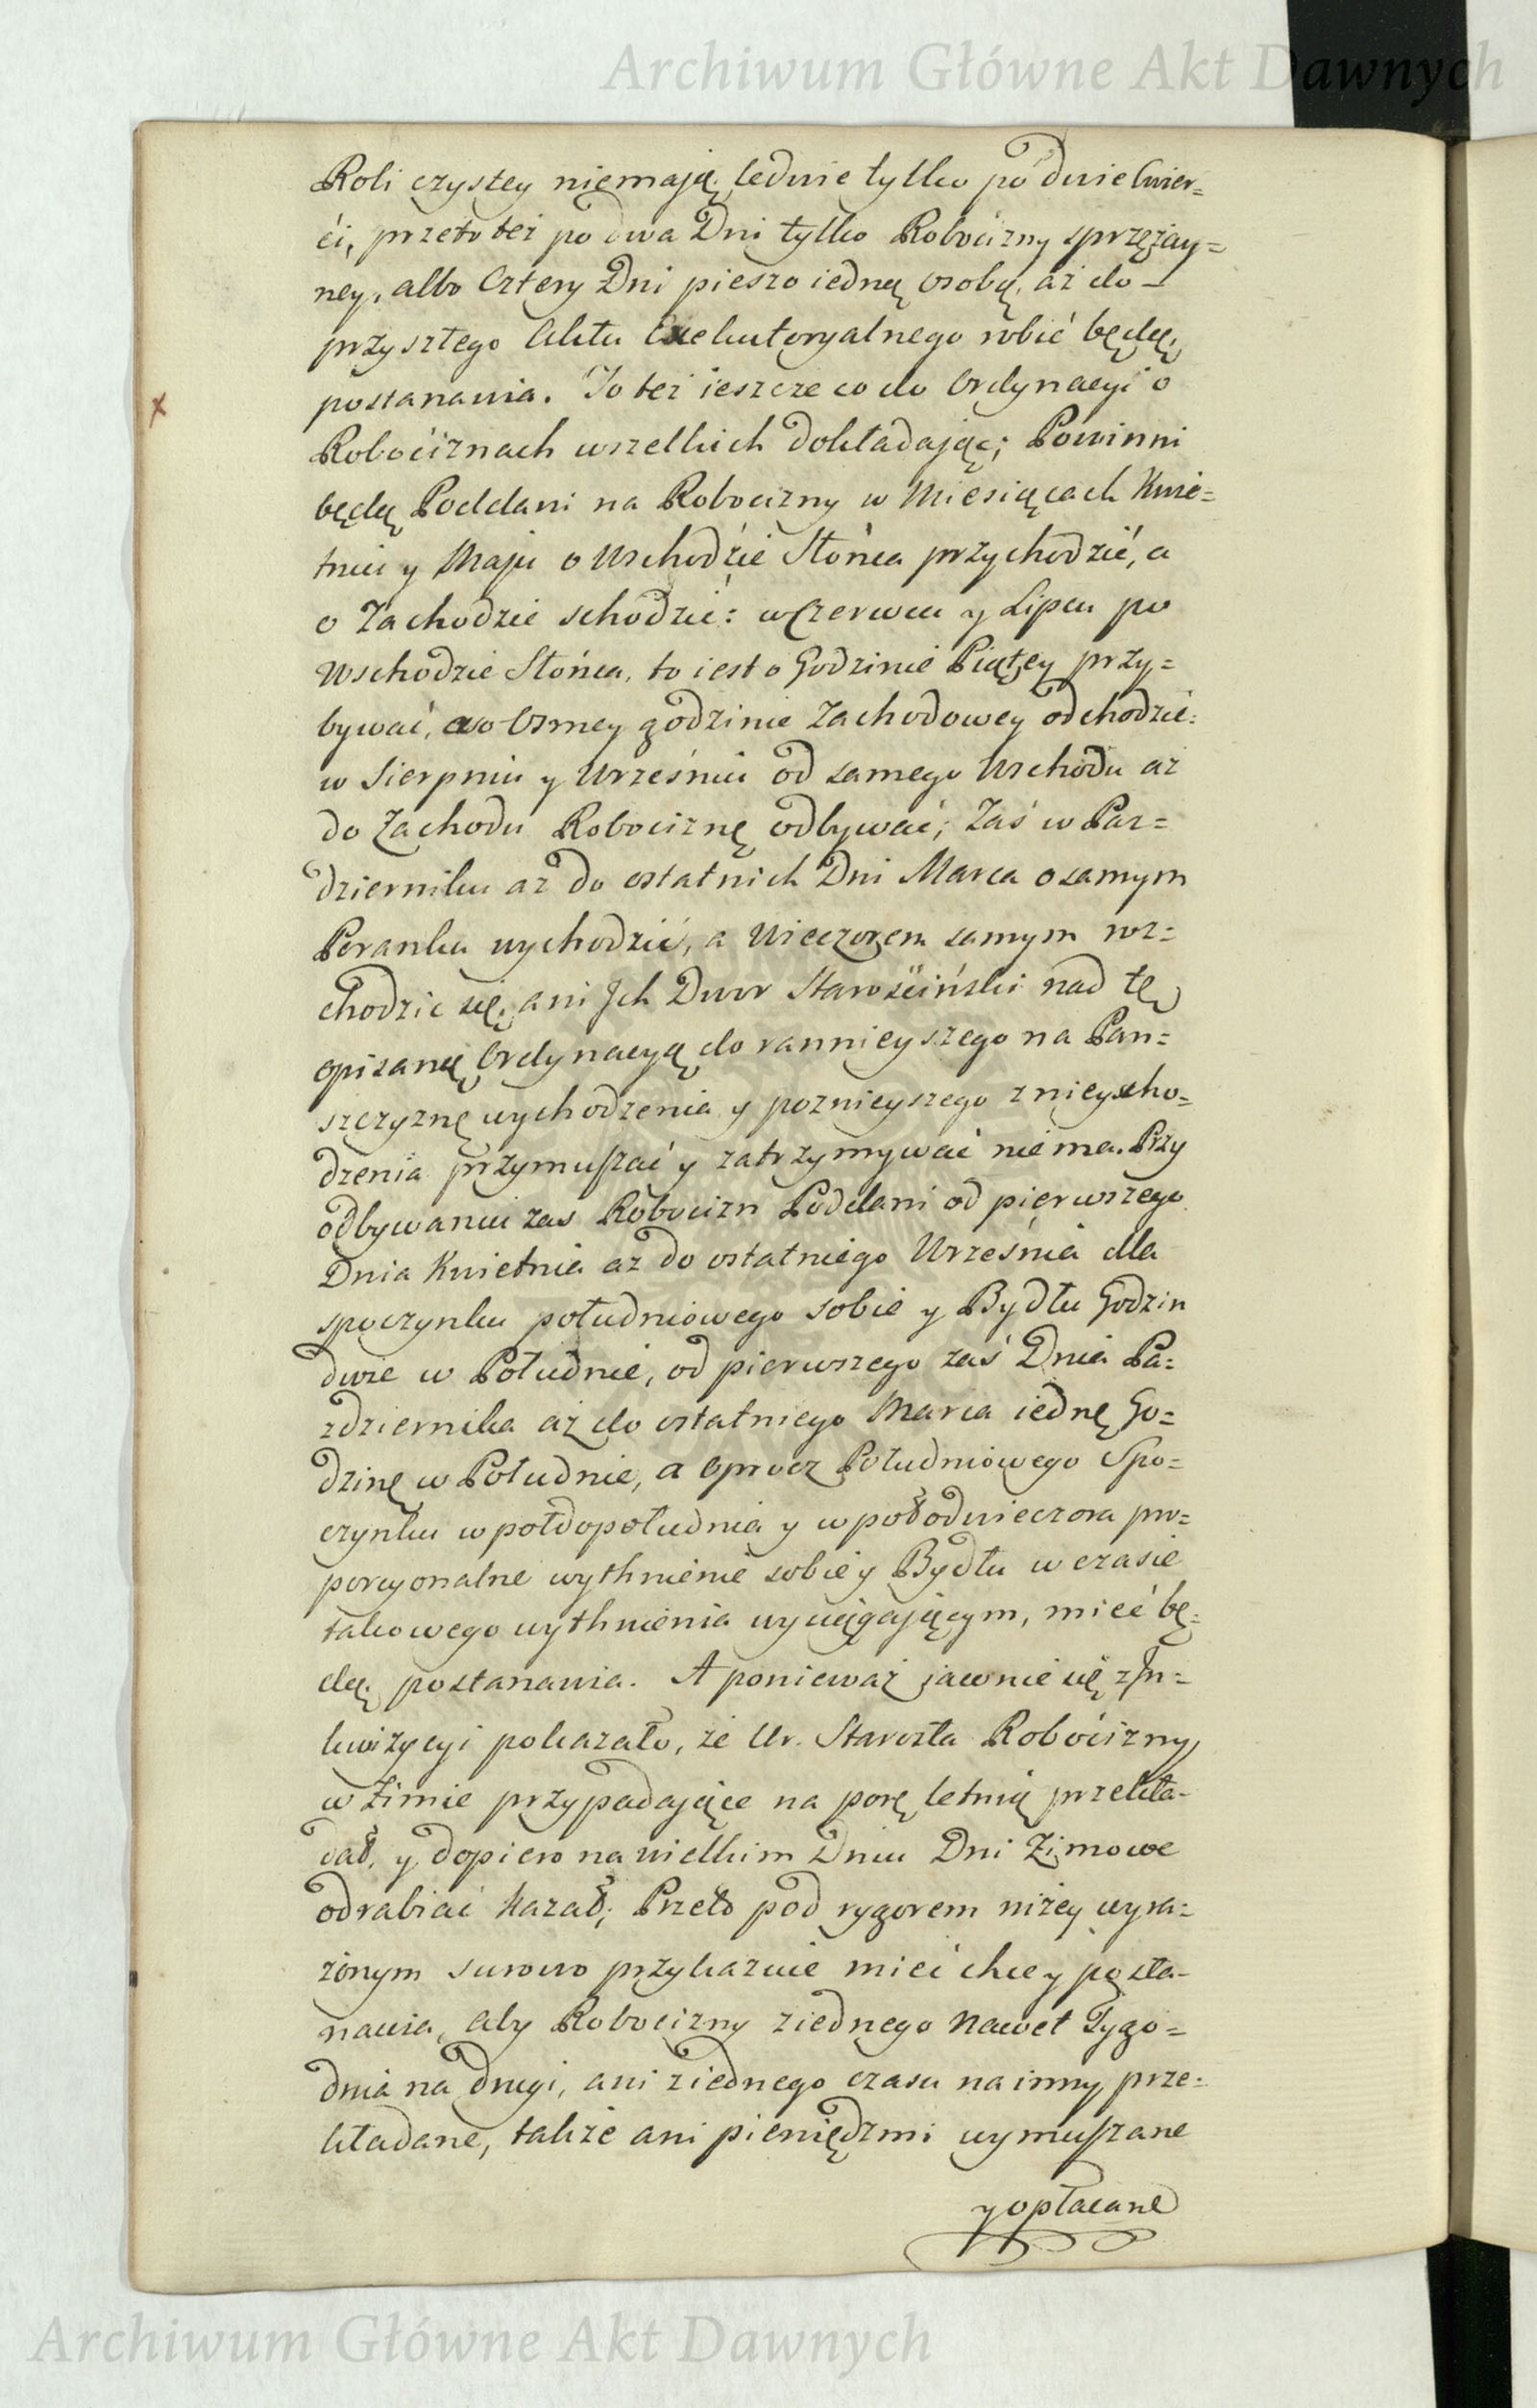 Archiwum Główne Akt Dawnych
Roli czystey niemają, ledwie tylko po dwie ćwier=
ci, przeto też po dwa Dni tylko Robocizny sprzężay=
ney, albo Cztery Dni pieszo iedną osobą, aż do
przyszłego Aktu Exekutoryalnego robić będą,
postanawia. To też ieszcze co do Ordynacyi o
Robociznach wszelkich dokładając; Powinni
będą Poddani na Robocizny w Miesiącach Kwie=
tniu y Maju o Wschodźie Słońca przychodzić, a
o Zachodzie schodzić: w Czerwcu y Lipcu po
Wschodzie Słońca, to iest o Godzinie Piątey przy=
bywać, a o Osmey godzinie Zachodowey odchodzić:
w Sierpniu y Wrześniu od samego Wschodu aż
do Zachodu Robociznę odbywać; Zaś w Paź=
dzierniku aż do ostatnich Dni Marca o samym
Poranku wychodzić, a Wieczorem samym roz=
chodzic się, ani Ich Dwor Starościński nad tę
opisaną Ordynacyą do rannieyszego na Pan=
szczyznę wychodzenia y poznieyszego z niey scho=
dzenia przymuszać y zatrzymywać nie ma. Przy
odbywaniu zas Robocizn Poddani od pierwszego
Dnia Kwietnia aż do ostatniego Września dla
spoczynku południowego sobie y Bydłu Godzin
dwie w Południe, od pierwszego zaś Dnia Pa=
zdziernika aż do ostatniego Marca iednę Go=
dzinę w Południe, a oprocz Południowego Spo=
czynku w poł do południa y w poł od wieczora pro=
porcyonalne wythnienie sobie y Bydłu w czasie
takowego wythnienia wyciągającym, mieć bę=
dą postanawia. A ponieważ jawnie się z In=
kwizycyi pokazało, że Ur. Starosta Robocizny
w Zimie przypadające na porę letnią przekła=
dał, y dopiero na wielkim Dniu Dni Zimowe
odrabiać kazał; Przeto pod rygorem niżey wyra=
żonym surowo przykazuie mieć chce y posta=
nawia, aby Robocizny z iednego nawet Tygo=
dnia na drugi, ani z iednego czasu na inny prze=
kładane, także ani pieniędzmi wymuszane
y opłacane
Archiwum Główne Akt Dawnych